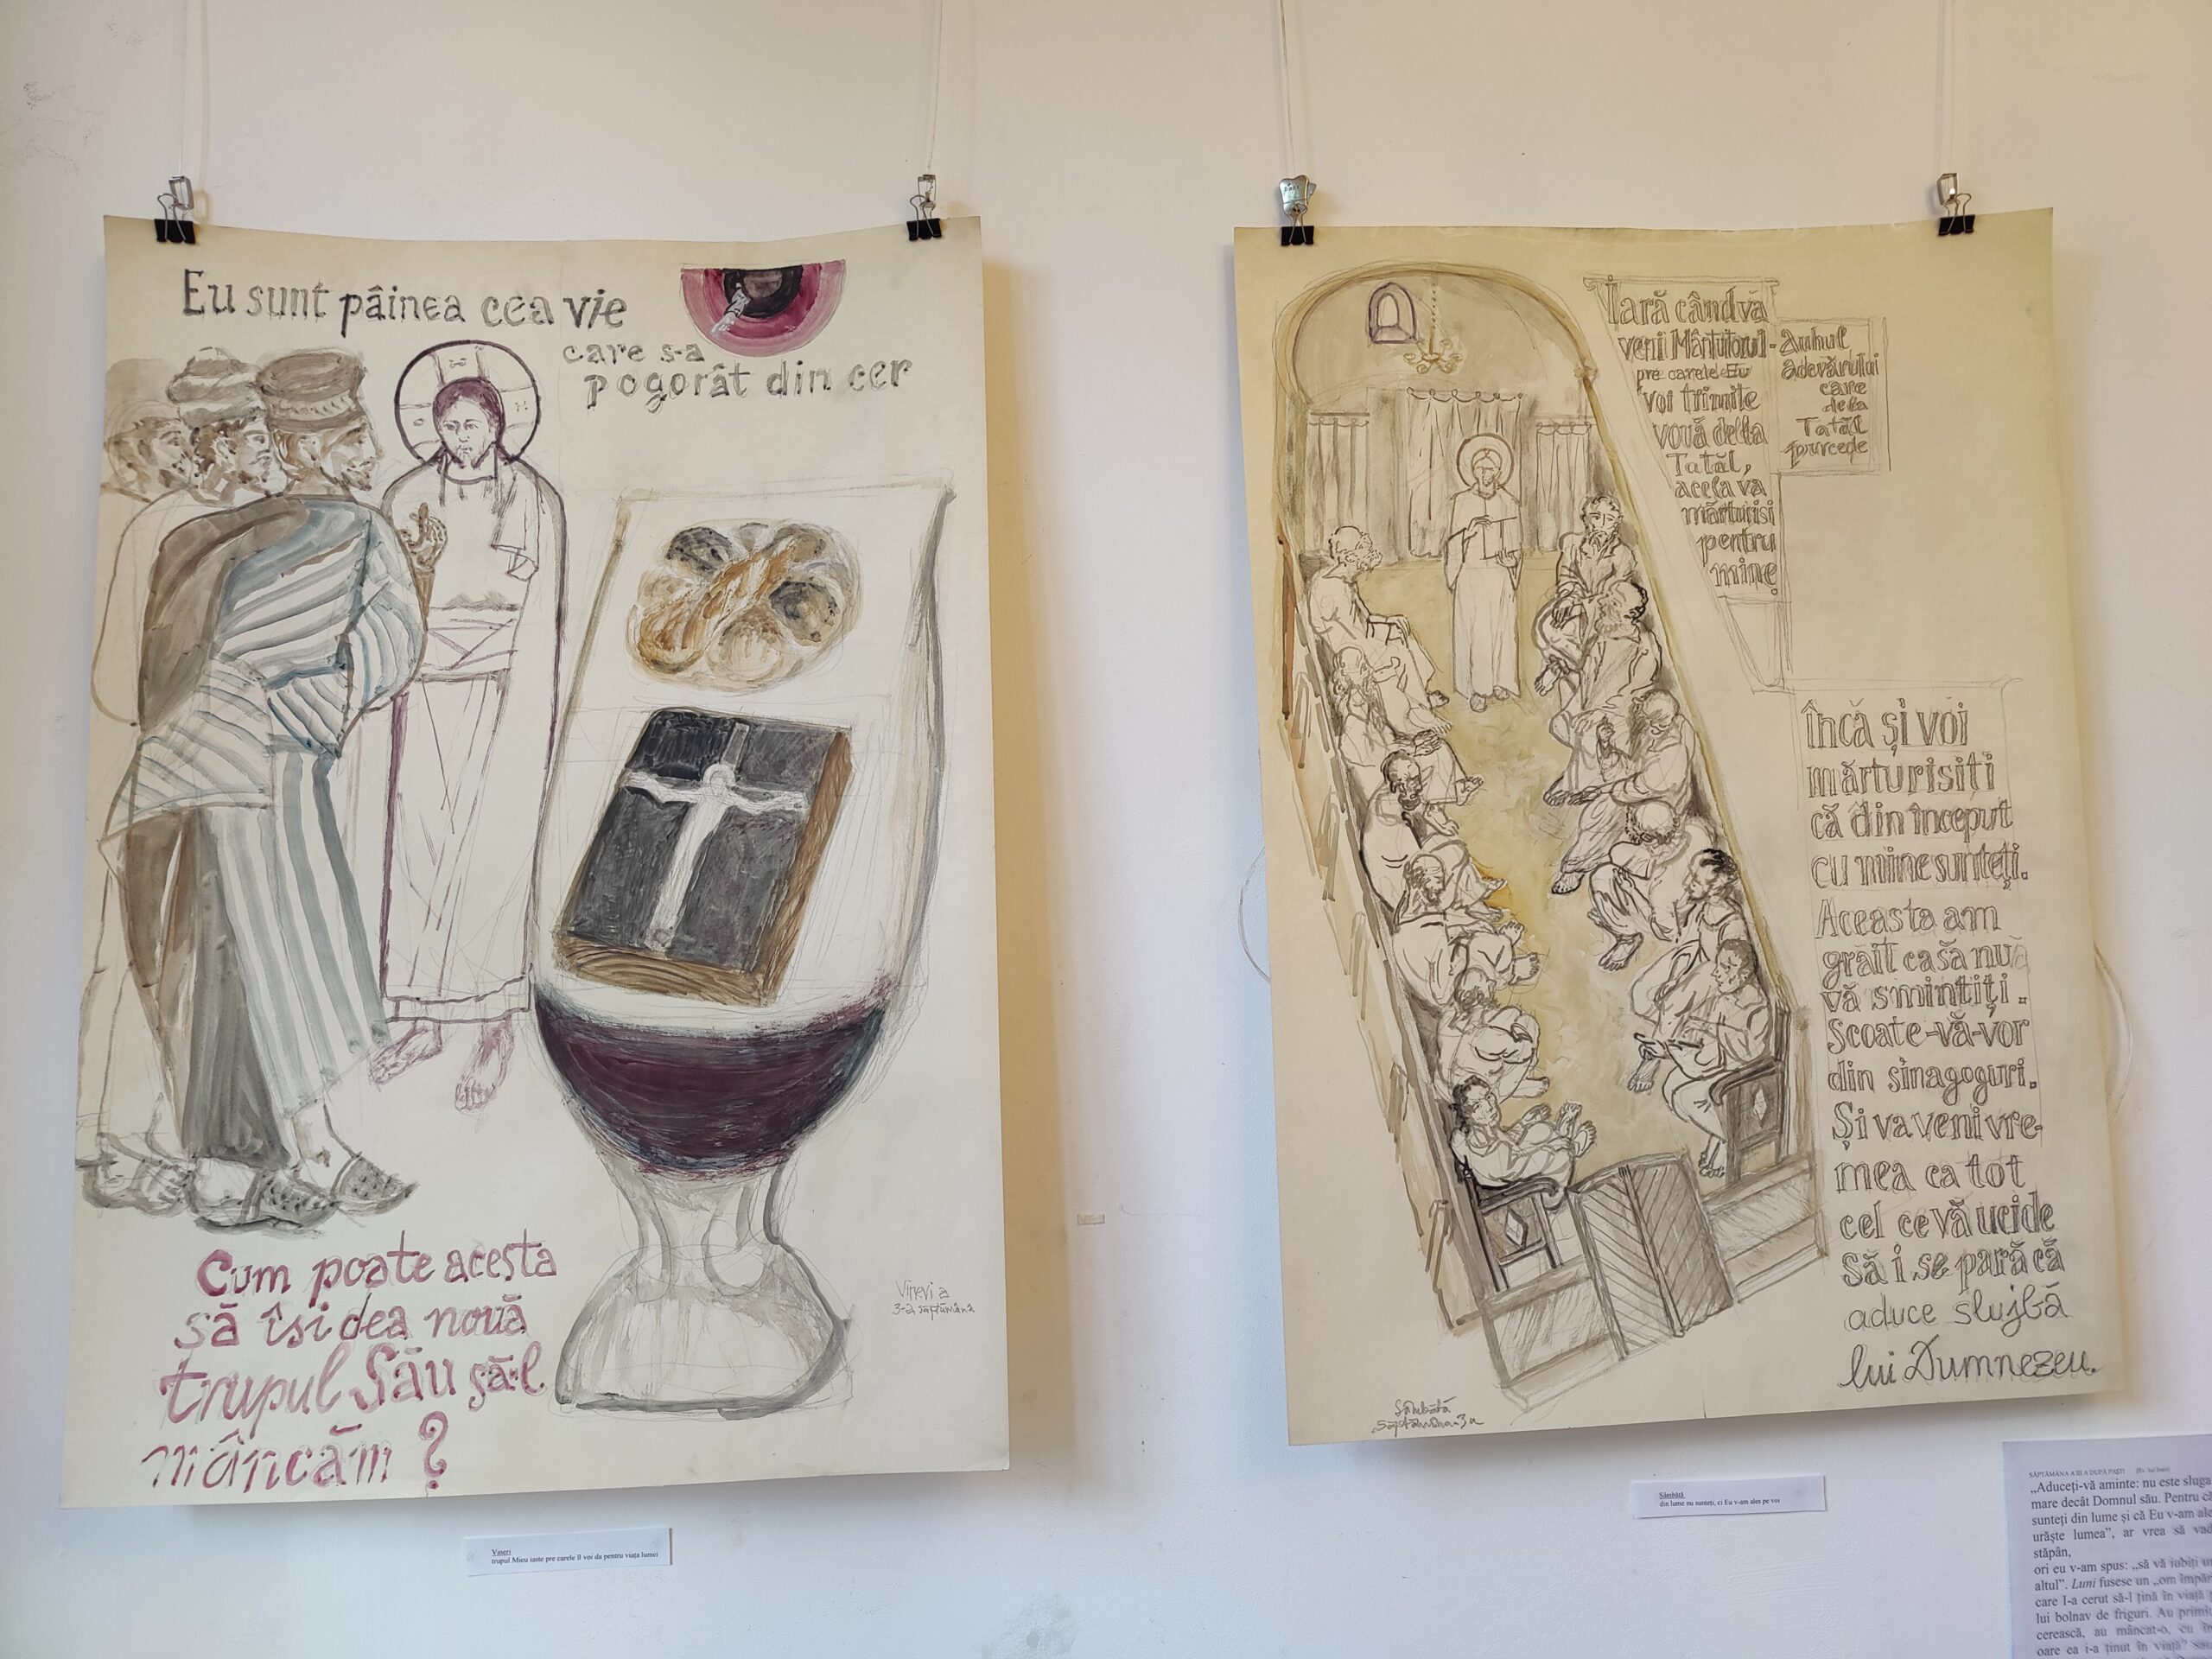 Eu sunt pâinea cea vie
care s-a
pogorât din cer
Cum poate acesta
să își dea nouă
trupul Său să-l
mâncăm ?
Vineri a
3-a săptămână
Vineri
trupul Mieu iaste pre carele îl voi da pentru viața lumei
Iară când va
veni Mântuitorul-
pre carele Eu
voi trimite
vouă de la
Tatăl,
acela va
mărturisi
pentru
mine
Duhul
adevărului
care
de la
Tatăl
purcede
Încă și voi
mărturisiți
că din început
cu mine sunteți.
Aceasta am
grăit ca să nu
vă smintiți.
Scoate-vă-vor
din sinagoguri.
Și va veni vre-
mea ca tot
cel ce vă ucide
Să i se pară că
aduce slujbă
lui Dumnezeu.
Sâmbătă
Săptămâna 3a
Sâmbătă
din lume nu sunteți, ci Eu v-am ales pe voi
SĂPTĂMÂNA A III A DUPĂ PAȘTI
„Aduceți-vă aminte: nu este sluga
mare decât Domnul său. Pentru că
sunteți din lume și că Eu v-am ale
urăște lumea”, ar vrea să vad
stăpân,
ori eu v-am spus: „să vă iubiți un
altul”. Luni fusese un „om împăr
care I-a cerut să-l țină în viață
lui bolnav de friguri. Au primi
cerească, au mâncat-o, cu în
oare ea i-a ținut în viață? sau